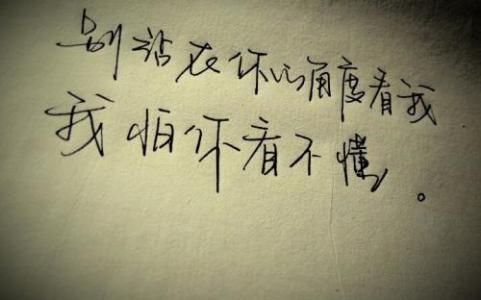 别站在你的角度看我
我怕你看不懂。